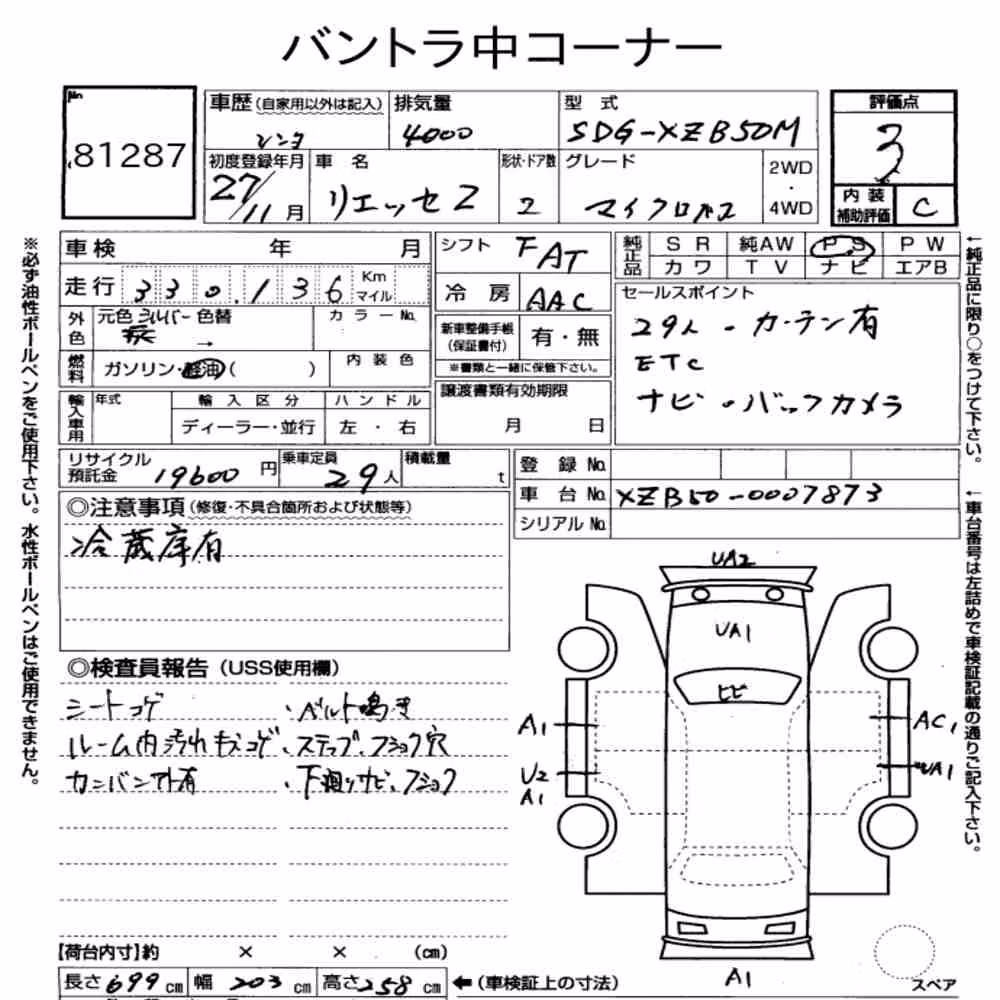 バントラ中コーナー
No. 81287
車歴(自家用以外は記入) レンタ
排気量 4000
型式 SDG-XZB50M
評価点 3
初度登録年月 27/11月
車名 リエッセ2
形状・ドア数 2
グレード マイクロバス
2WD・4WD
内装補助評価 C
車検 年 月
シフト FAT
純正品 SR 純AW PS PW
カワ TV ナビ エアB
走行 330,136 Km マイル
冷房 AAC
セールスポイント
29人・カーテン有
ETC
ナビ・バックカメラ
外色 元色 シルバー 色替 → カラーNo.
新車整備手帳(保証書付) 有・無
※書類と一緒に保管下さい。
燃料 ガソリン・軽油( ) 内装色
譲渡書類有効期限 月 日
輸入車用 年式 輸入区分 ハンドル
ディーラー・並行 左・右
リサイクル預託金 19600円
乗車定員 29人
積載量 t
登録No.
車台No. XZB50-0007873
シリアルNo.
◎注意事項(修復・不具合箇所および状態等)
冷蔵庫有
◎検査員報告(USS使用欄)
シートコゲ ・ベルト鳴き
ルーム内汚れキズコゲ・ステップ、フショク穴
カンバン下有 ・下廻りサビ、フショク
UA2
UA1
ヒビ
A1
AC1
U2
A1
UA1
A1
スペア
【荷台内寸】約 × × (cm)
長さ 699 cm 幅 203 cm 高さ 258 cm ←(車検証上の寸法)
※必ず油性ボールペンをご使用下さい。水性ボールペンはご使用できません。
←純正品に限り○をつけて下さい。
←車台番号は左詰めで車検証記載の通りご記入下さい。